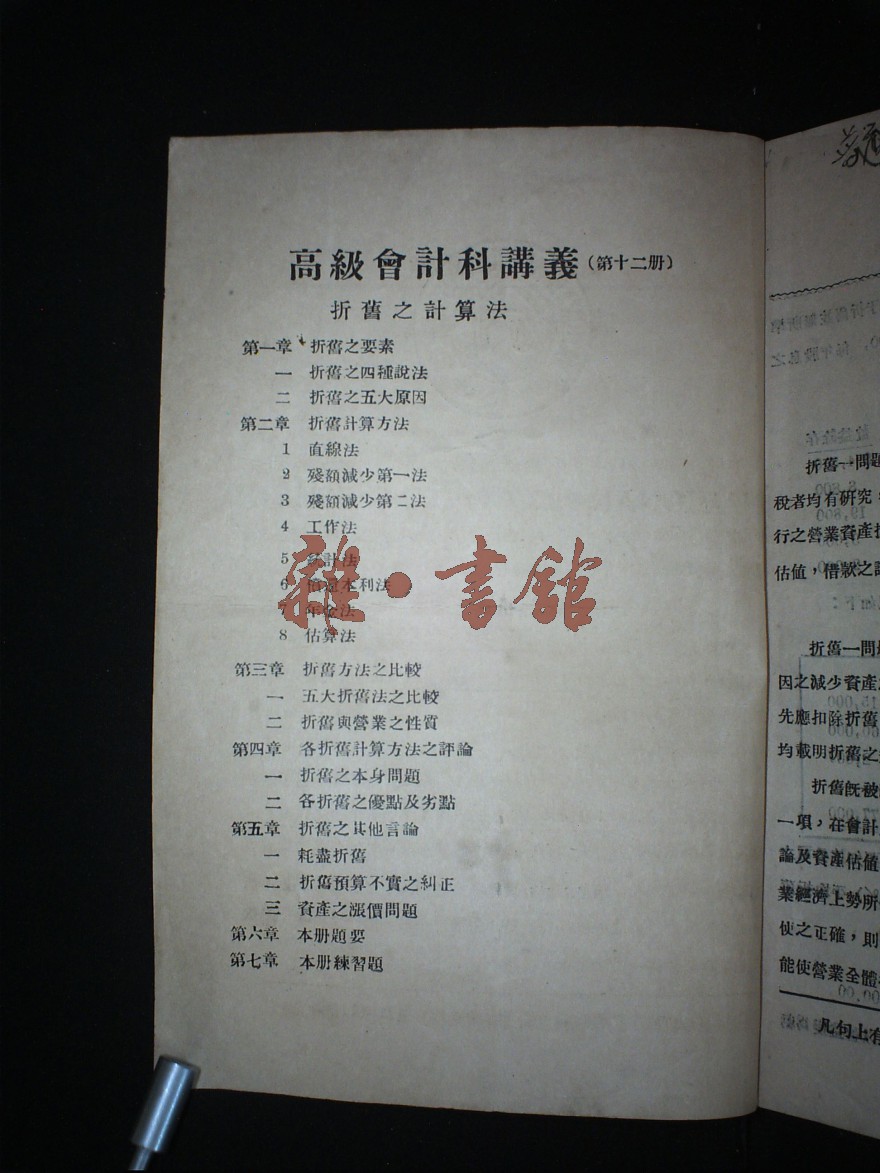 高級會計科講義(第十二册)
折舊之計算法
第一章 折舊之要素
一 折舊之四種說法
二 折舊之五大原因
第二章 折舊計算方法
1 直線法
2 殘額減少第一法
3 殘額減少第二法
4 工作法
5 統計法
6 償還本利法
7 年金法
8 估算法
第三章 折舊方法之比較
一 五大折舊法之比較
二 折舊與營業之性質
第四章 各折舊計算方法之評論
一 折舊之本身問題
二 各折舊之優點及劣點
第五章 折舊之其他言論
一 耗盡折舊
二 折舊預算不實之糾正
三 資產之漲價問題
第六章 本册題要
第七章 本册練習題
雜·書館
折舊一問題
稅者均有研究
行之營業資產
估値,借歀之
折舊一問
因之減少資產
先應扣除折舊
均載明折舊之
折舊旣被
一項,在會計
論及資產估値
業經濟上勢所
使之正確,則
能使營業全體
凡句上有